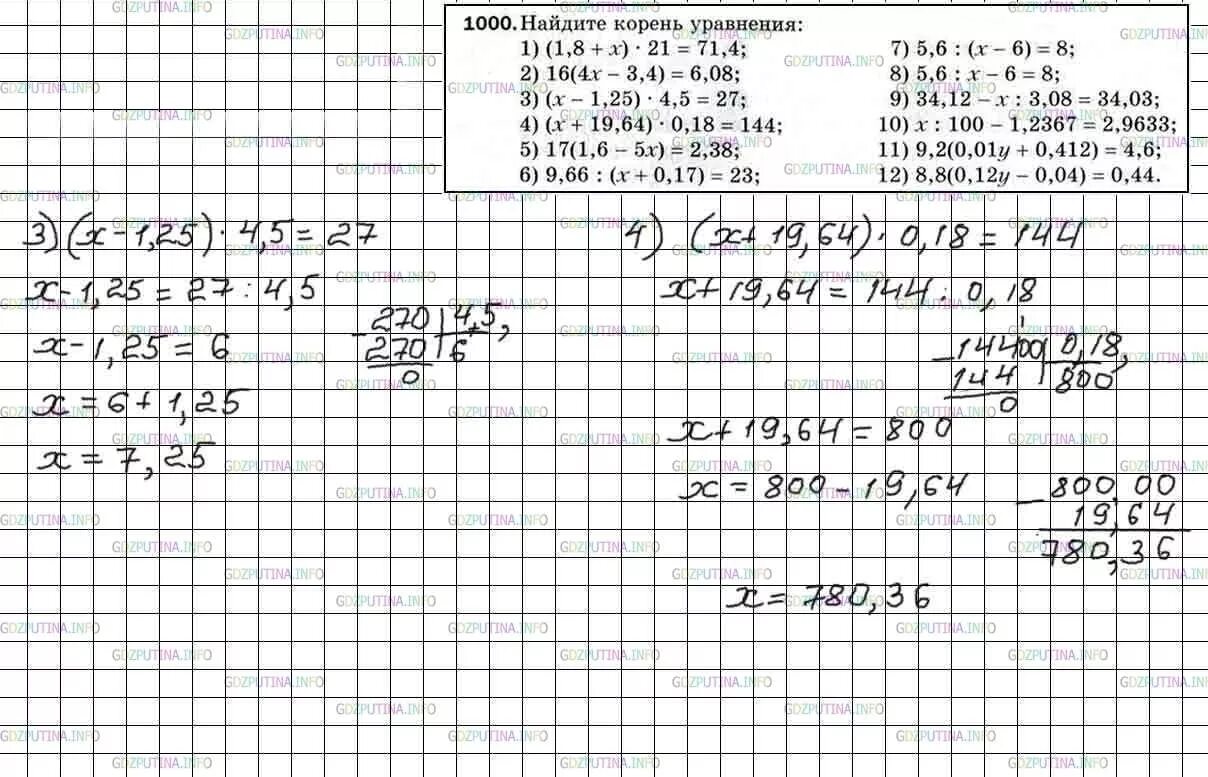 1000. Найдите корень уравнения:
1) (1,8 + x) · 21 = 71,4;
2) 16(4x − 3,4) = 6,08;
3) (x − 1,25) · 4,5 = 27;
4) (x + 19,64) · 0,18 = 144;
5) 17(1,6 − 5x) = 2,38;
6) 9,66 : (x + 0,17) = 23;
7) 5,6 : (x − 6) = 8;
8) 5,6 : x − 6 = 8;
9) 34,12 − x : 3,08 = 34,03;
10) x : 100 − 1,2367 = 2,9633;
11) 9,2(0,01y + 0,412) = 4,6;
12) 8,8(0,12y − 0,04) = 0,44.
3) (x − 1,25) · 4,5 = 27
x − 1,25 = 27 : 4,5
270 | 4,5,
x − 1,25 = 6
− 270 | 6
0
x = 6 + 1,25
x = 7,25
4) (x + 19,64) · 0,18 = 144
x + 19,64 = 144 : 0,18
− 14400 | 0,18,
144 | 800
0
x + 19,64 = 800
x = 800 − 19,64
− 800,00
19,64
780,36
x = 780,36
GDZPUTINA.INFO